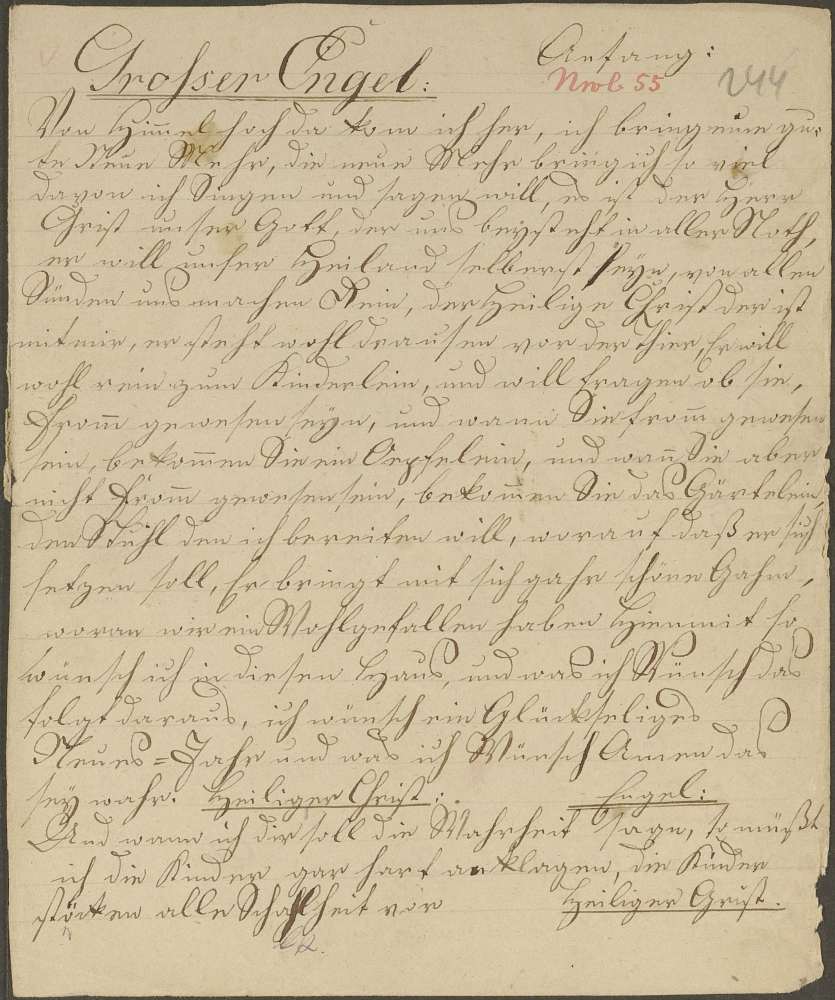 Anfang:
Grosser Engel:
Nrob 55 244
Von Himmel hoch da kom ich her, ich bring eine gu:
te Neue Mehr, die neue Mehr bring ich so viel
davon ich Singen und sagen will, es ist der Herr
Christ unser Gott, der uns beysteht in aller Noth,
er will unser Heiland selberst seyn, von allen
Sünden uns machen Rein, der Heilige Christ der ist
mit mir, er steht wohl drausen vor der Thier, Er will
wohl rein zum Kinderlein, und will fragen ob sie,
From̄ gewesen seyn, und wann Sie from̄ gewesen
sein, bekom̄en Sie ein Oepfelein, und wan̄ Sie aber
nicht From̄ gewesen sein, bekom̄en Sie das Gärtelein,
den Stuhl den ich bereiten will, worauf daß er sich
setzen soll, Er bringt mit sich gahr schöne Gahm,
woran wir ein Wohlgefallen haben Hienmit so
wünsch ich in diesen Haus, und was ich Wünsch das
folgt daraus, ich wünsch ein Glückseliges
Neues=Jahr und was ich Wünsch Amen das
sey wahr. Heiliger Christ: Engel:
Und wann ich dir soll die Wahrheit sagn, so müßt
ich die Kinder gar hart anklagen, die Kinder
stöcken alle Schalheit vor Heiliger Grist.